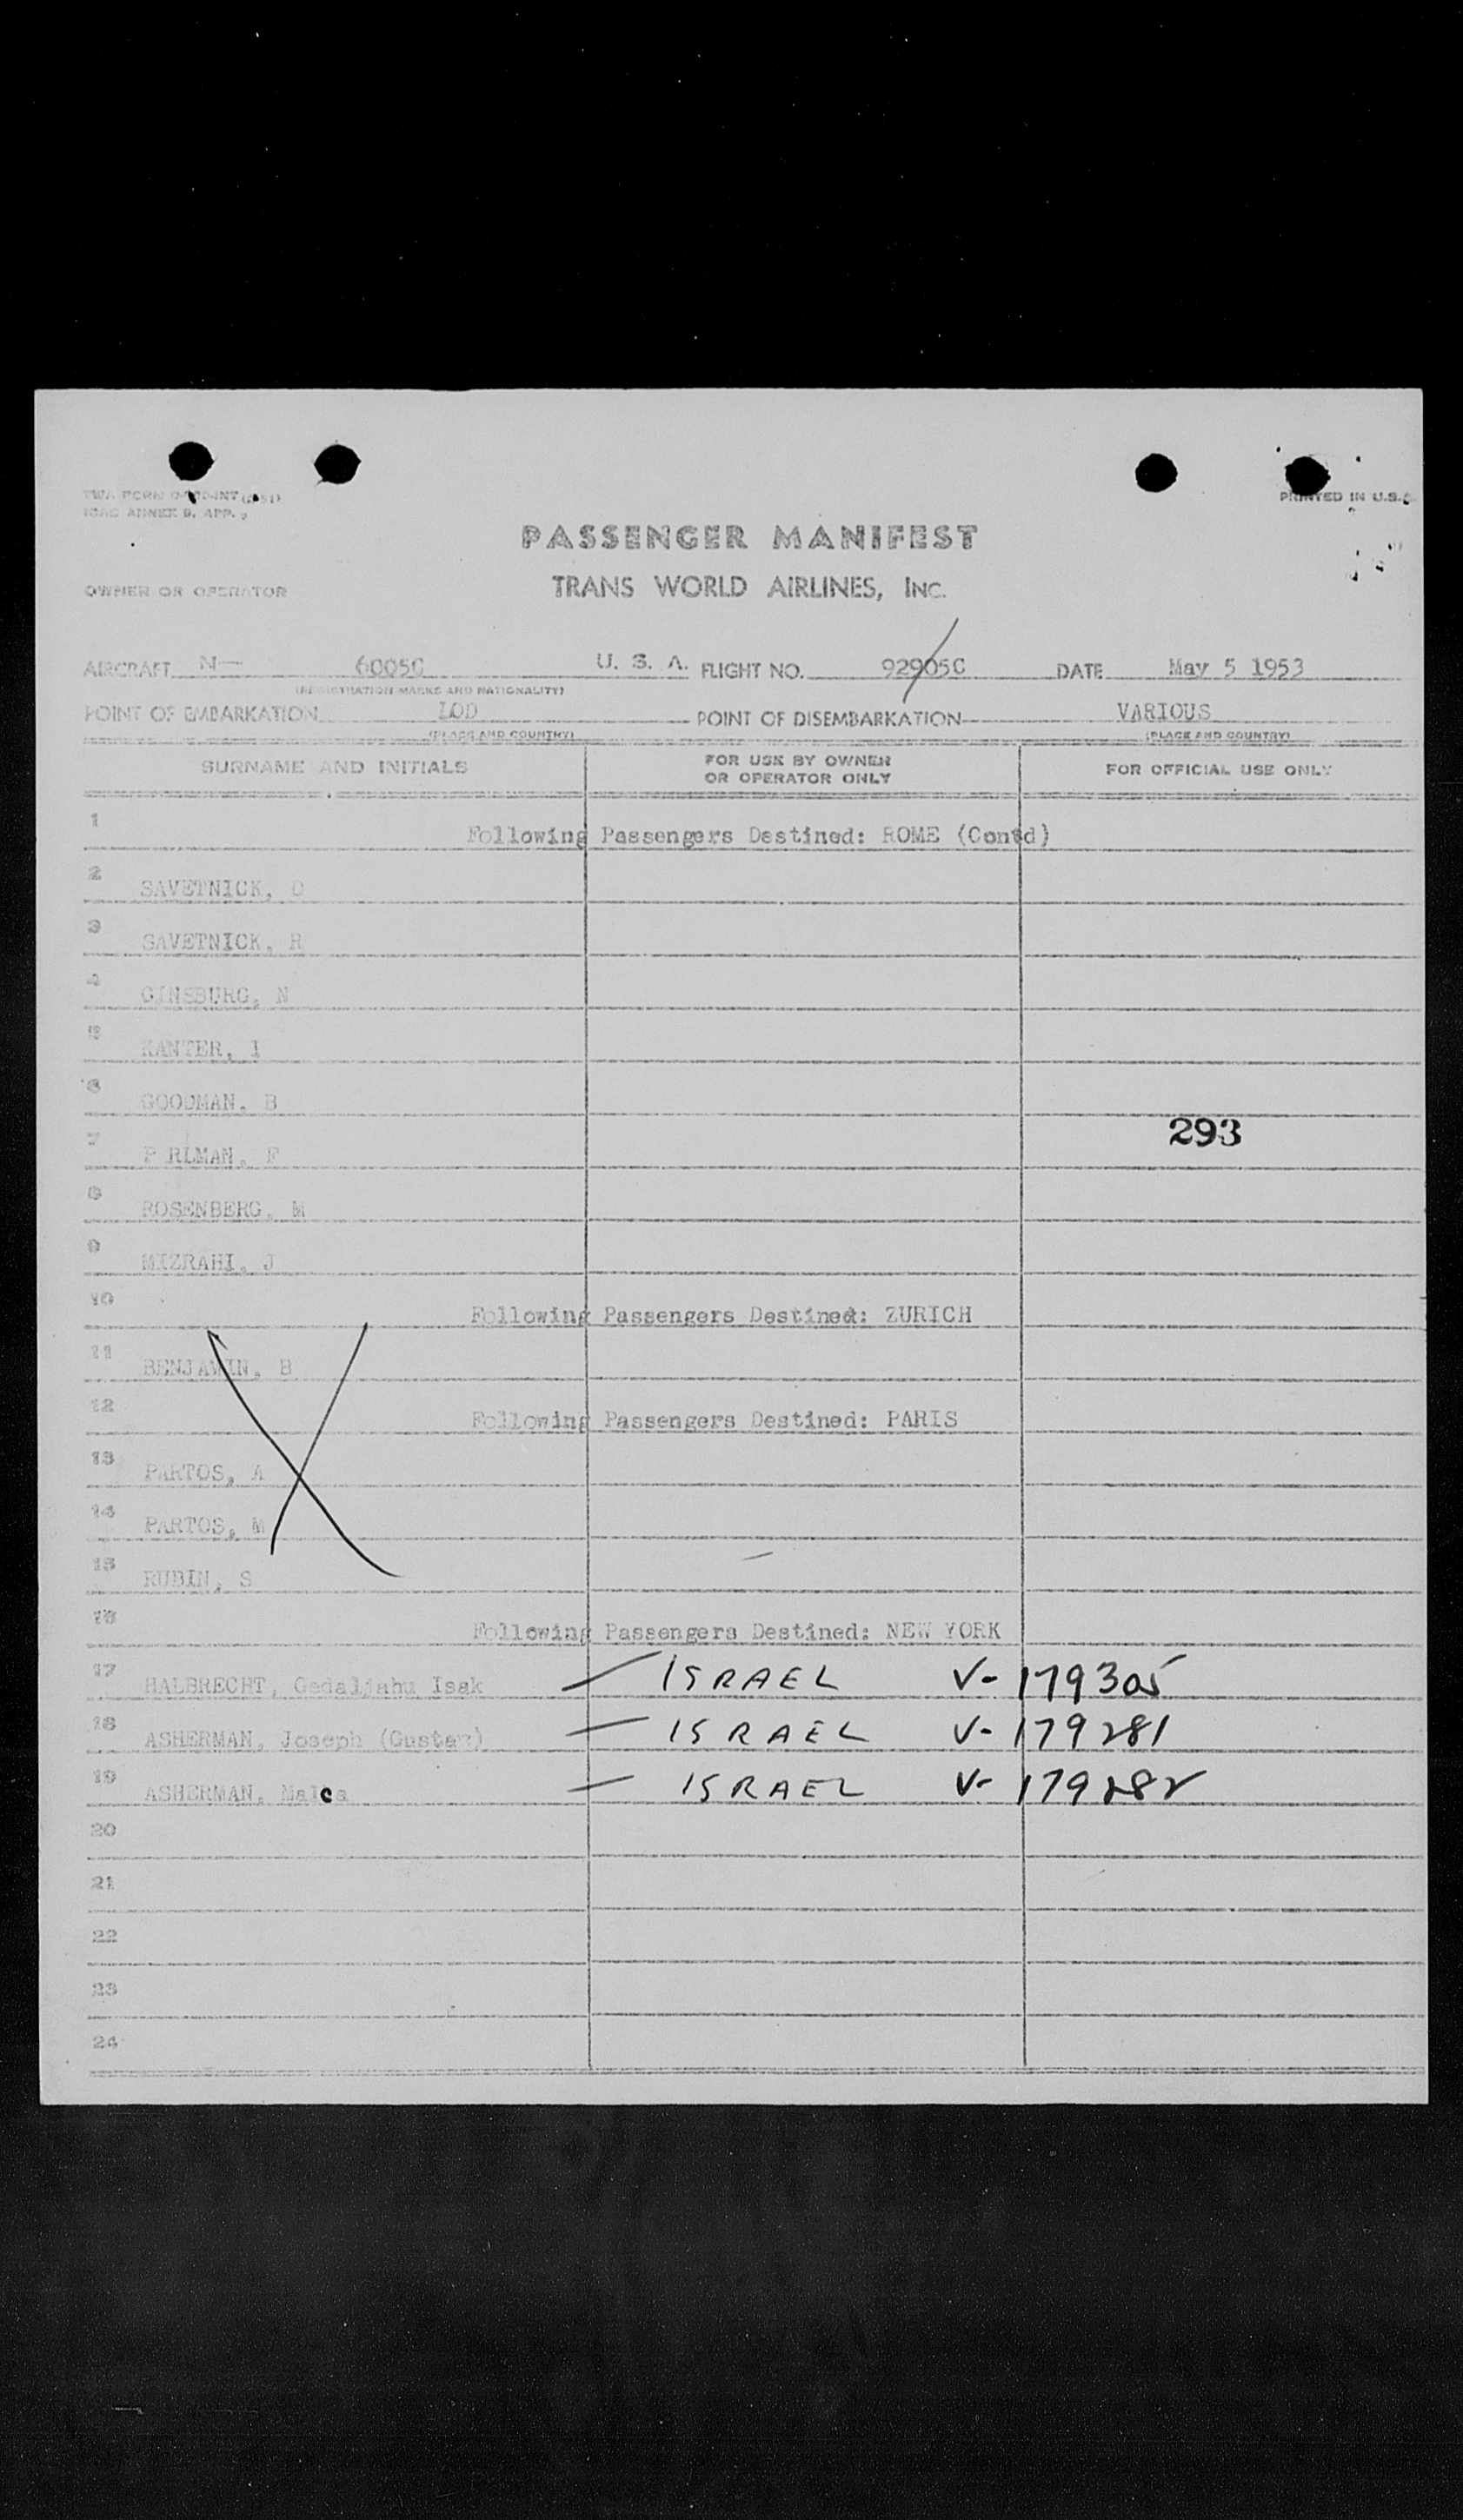 PRINTED IN U.S.A.
PASSENGER MANIFEST
OWNER OR OPERATOR TRANS WORLD AIRLINES, INC.
AIRCRAFT N— 6005C U. S. A. FLIGHT NO. 929/05C DATE May 5 1953
(REGISTRATION MARKS AND NATIONALITY)
POINT OF EMBARKATION LOD POINT OF DISEMBARKATION VARIOUS
(PLACE AND COUNTRY) (PLACE AND COUNTRY)
SURNAME AND INITIALS FOR USE BY OWNER OR OPERATOR ONLY FOR OFFICIAL USE ONLY
1 Following Passengers Destined: ROME (Contd)
2 SAVETNICK, D
3 SAVETNICK, R
4 GINSBURG, N
5 KANTER, I
6 GOODMAN, B
293
7 P RLMAN, F
8 ROSENBERG, M
9 MIZRAHI, J
10 Following Passengers Destined: ZURICH
11 BENJAMIN, B
12 Following Passengers Destined: PARIS
13 PARTOS, A
14 PARTOS, M
15 RUBIN, S
16 Following Passengers Destined: NEW YORK
17 HALBRECHT, Gedaljahu Isak — ISRAEL V-179305
18 ASHERMAN, Joseph (Gustav) — ISRAEL V-179281
19 ASHERMAN, Malca — ISRAEL V-179282
20
21
22
23
24